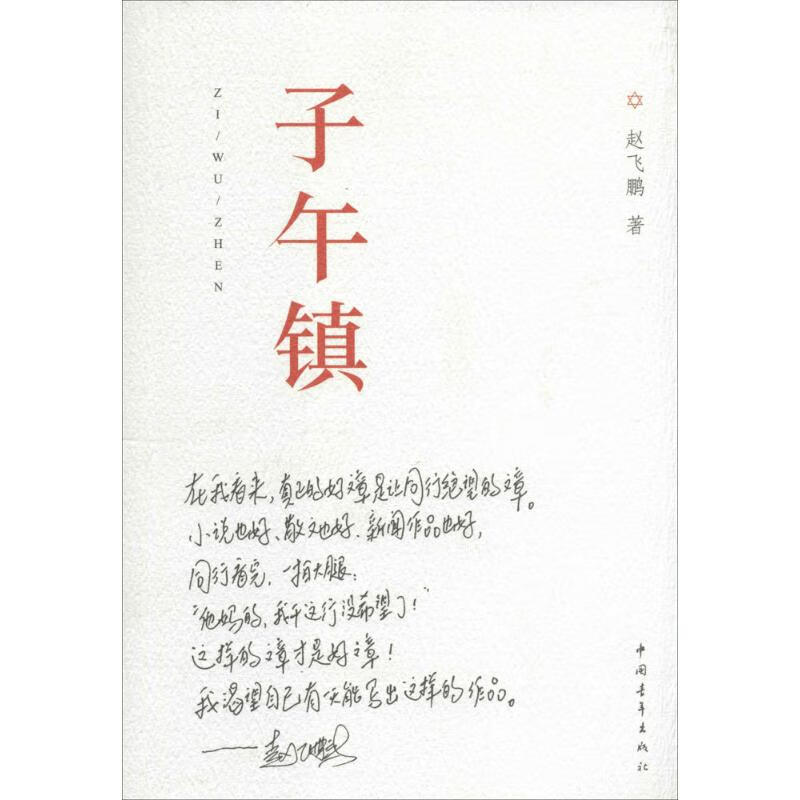 子午镇
ZI/WU/ZHEN
赵飞鹏 著
在我看来,真正的好文章是让同行绝望的文章。
小说也好、散文也好、新闻作品也好,
同行看完,一拍大腿:
“他妈的,我干这行没希望了!”
这样的文章才是好文章!
我渴望自己有天能写出这样的作品。
——赵飞鹏
中国青年出版社